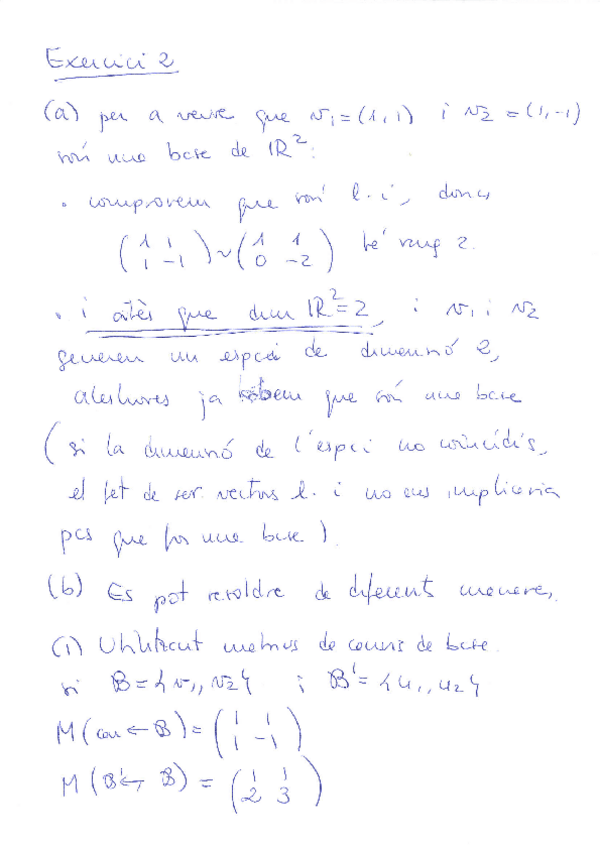 Exercici 2
(a) per a veure que v₁ = (1,1) i v₂ = (1,-1)
són una base de ℝ²:
• comprovem que són l.i, doncs
(1 1; 1 -1) ~ (1 1; 0 -2) té rang 2.
• i atès que dim ℝ² = 2, i v₁ i v₂
generen un espai de dimensió 2,
aleshores ja sabem que són una base
(si la dimensió de l'espai no coincidís,
el fet de ser vectors l.i no ens implicaria
pas que fos una base).
(b) Es pot resoldre de diferents maneres,
(i) Utilitzant matrius de canvis de base.
si B = {v₁, v₂} i B' = {u₁, u₂}
M(can ← B) = (1 1; 1 -1)
M(B' ← B) = (1 1; 2 3)